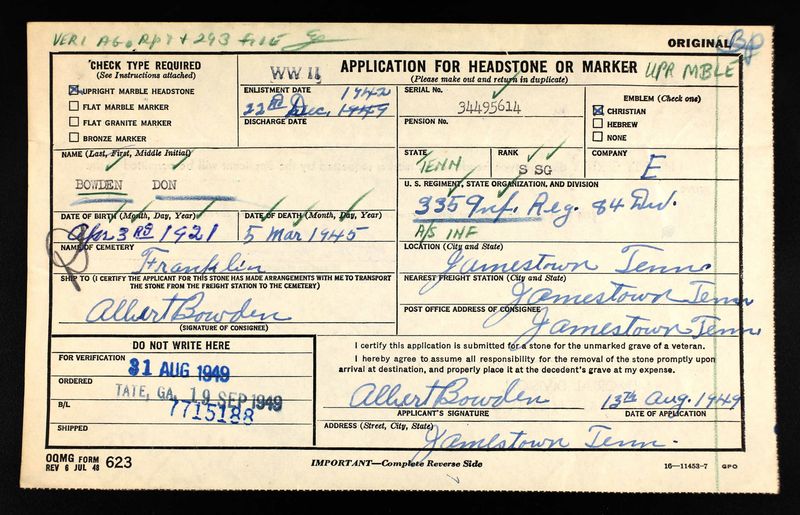 VERI AGO Rpt + 293 FILE
ORIGINAL
CHECK TYPE REQUIRED
(See Instructions attached)
UPRIGHT MARBLE HEADSTONE
FLAT MARBLE MARKER
FLAT GRANITE MARKER
BRONZE MARKER
WW II
APPLICATION FOR HEADSTONE OR MARKER
(Please make out and return in duplicate)
UPR MBLE
ENLISTMENT DATE
1942
22nd Dec. 1949
DISCHARGE DATE
SERIAL No.
34495614
PENSION No.
EMBLEM (Check one)
CHRISTIAN
HEBREW
NONE
NAME (Last, First, Middle Initial)
BOWDEN DON
STATE
TENN
RANK
S SG
COMPANY
E
U. S. REGIMENT, STATE ORGANIZATION, AND DIVISION
335 Inf. Reg. 84 Div.
A/S INF
DATE OF BIRTH (Month, Day, Year)
Apr 3RD 1921
DATE OF DEATH (Month, Day, Year)
5 Mar 1945
NAME OF CEMETERY
Franklin
LOCATION (City and State)
Jamestown Tenn.
SHIP TO (I CERTIFY THE APPLICANT FOR THIS STONE HAS MADE ARRANGEMENTS WITH ME TO TRANSPORT
THE STONE FROM THE FREIGHT STATION TO THE CEMETERY)
Albert Bowden
(SIGNATURE OF CONSIGNEE)
NEAREST FREIGHT STATION (City and State)
Jamestown Tenn
POST OFFICE ADDRESS OF CONSIGNEE
Jamestown Tenn
DO NOT WRITE HERE
FOR VERIFICATION
31 AUG 1949
ORDERED
TATE, GA. 19 SEP 1949
B/L
7715188
SHIPPED
I certify this application is submitted for a stone for the unmarked grave of a veteran.
I hereby agree to assume all responsibility for the removal of the stone promptly upon
arrival at destination, and properly place it at the decedent's grave at my expense.
Albert Bowden 13th Aug. 1949
APPLICANT'S SIGNATURE DATE OF APPLICATION
ADDRESS (Street, City, State)
Jamestown Tenn.
OQMG FORM
REV 6 JUL 48 623
IMPORTANT—Complete Reverse Side
16—11453-7 GPO